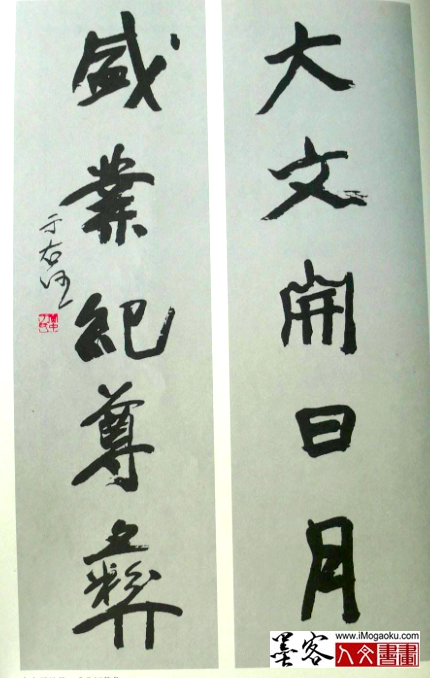 大文開日月
盛業紀尊彝
于右任
www.iMogaoku.com
墨客
人文書畫